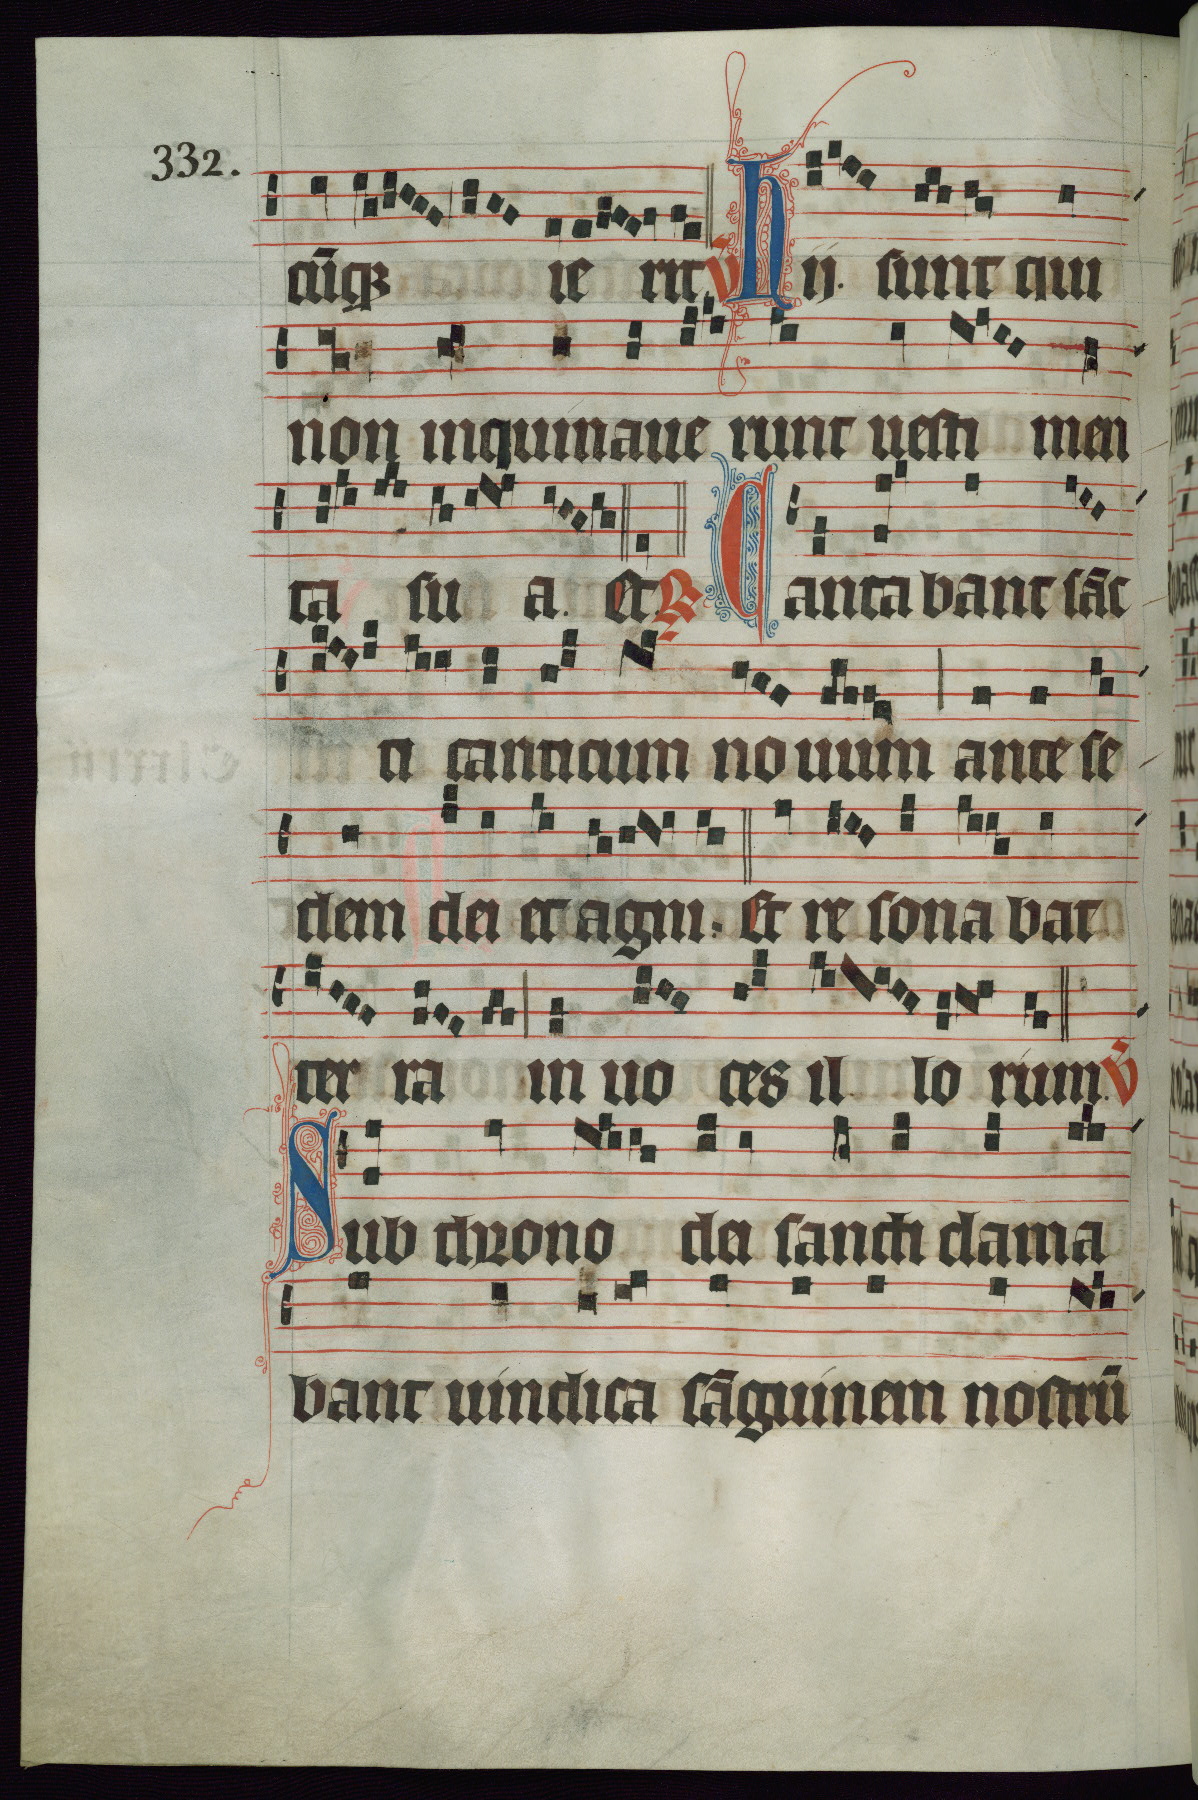 332.
cūqꝫ ie rit. V̄ Hij. sunt qui
non inquinaue runt uesti men
ta su a. Et. R̄ Cantabant sāc
ti canticum nouum ante se
dem dei et agni. Et re sona bat
ter ra in uo ces il lo rum. V̄
Sub throno dei sancti clama
bant uindica sāguinem nostrū